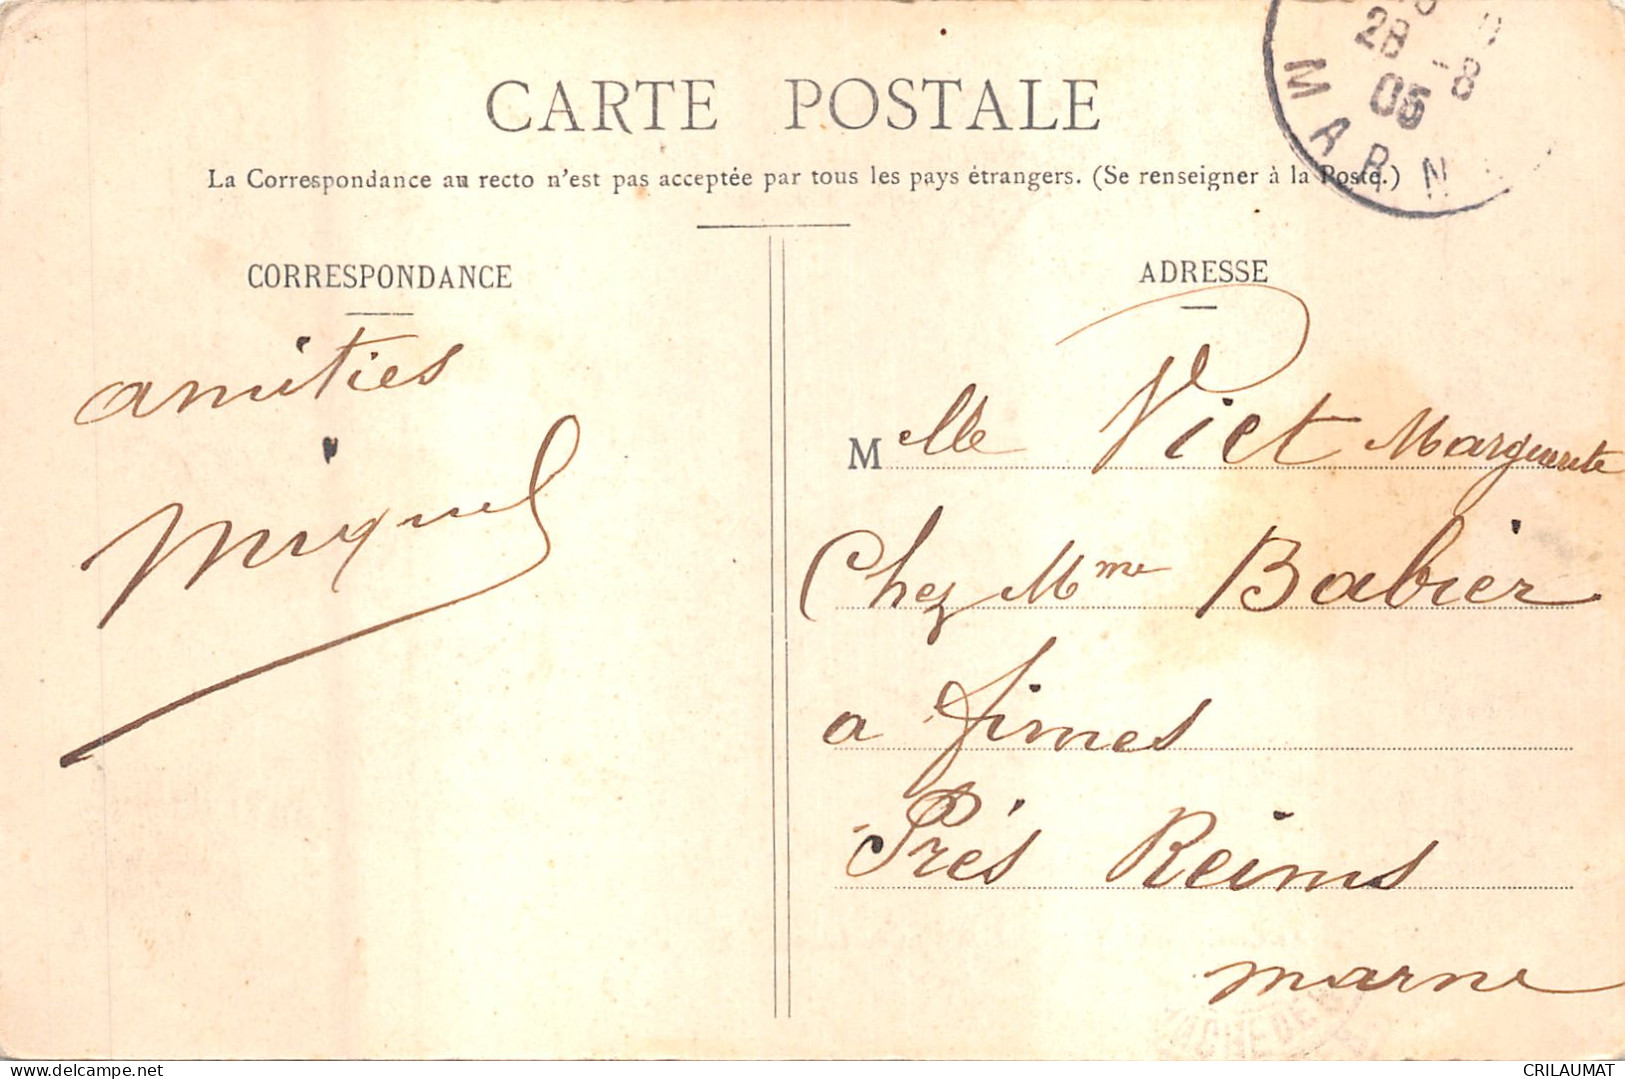 CARTE POSTALE
La Correspondance au recto n'est pas acceptée par tous les pays étrangers. (Se renseigner à la Poste.)
CORRESPONDANCE
amitiés
Miquel
ADRESSE
Melle Viet Marguerite
Chez Mme Babier
a fimes
Prés Reims
marne
28 -8
05
MARN
CRILAUMAT